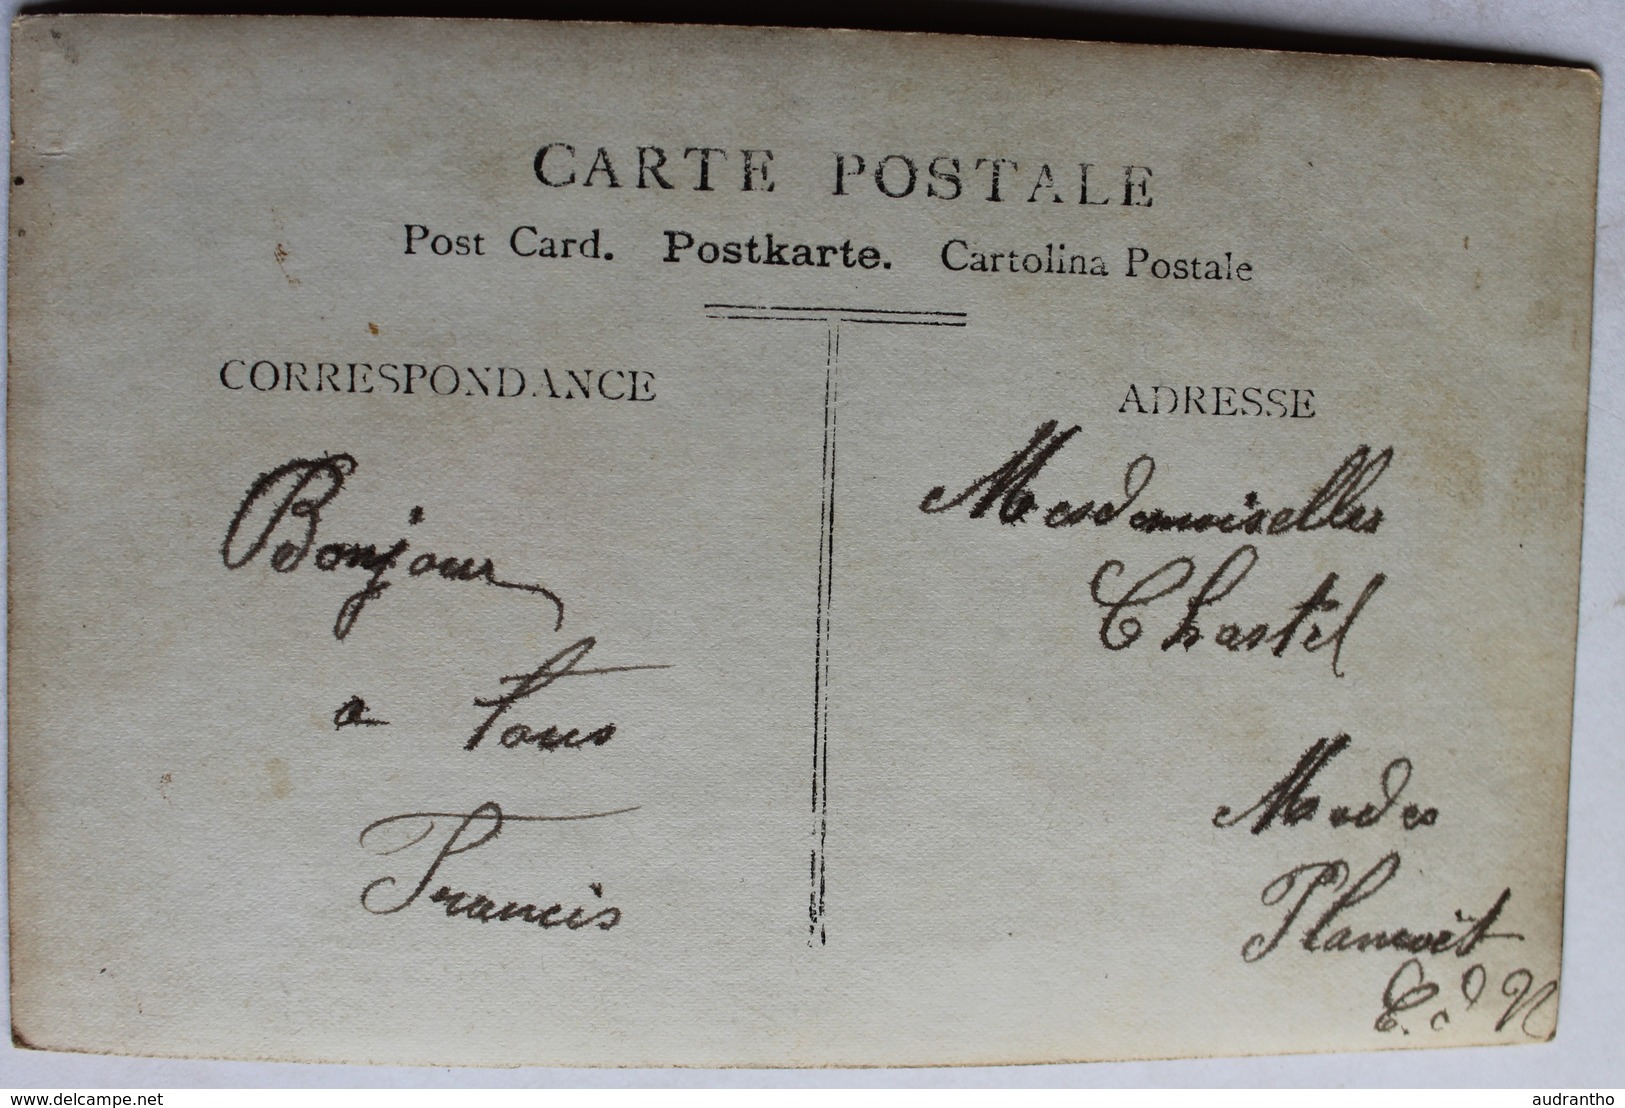 CARTE POSTALE
Post Card. Postkarte. Cartolina Postale
CORRESPONDANCE
Bonjour
a tous
Francis
ADRESSE
Mesdemoiselles
Chastel
Modes
Plancoët
C. d N
www.delcampe.net
audrantho